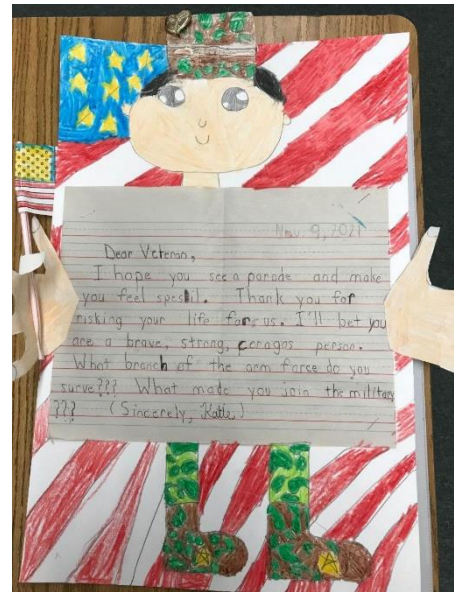 Nov. 9, 2021
Dear Veteran,
I hope you see a parade and make
you feel spesil. Thank you for
risking your life for us. I'll bet you
are a brave, strong, coragas person.
What branch of the arm force do you
surve??? What made you join the military
??? (Sincerely, Katie)